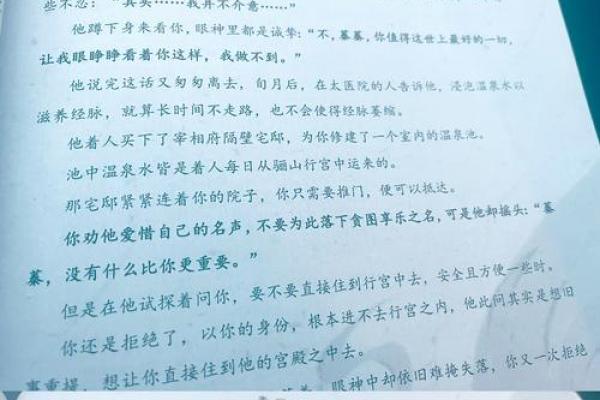 些不忍：“其实……我并不介意……”
他蹲下身来看你，眼神里都是诚挚：“不，蓁蓁，你值得这世上最好的一切，
让我眼睁睁看着你这样，我做不到。”
他说完这话又匆匆离去，旬月后，在太医院的人告诉他，浸泡温泉水以
滋养经脉，就算长时间不走路，也不会使得经脉萎缩。
他着人买下了宰相府隔壁宅邸，为你修建了一个室内的温泉池。
池中温泉水皆是着人每日从骊山行宫中运来的。
那宅邸紧紧连着你的院子，你只需要推门，便可以抵达。
你劝他爱惜自己的名声，不要为此落下贪图享乐之名，可是他却摇头：“蓁
蓁，没有什么比你更重要。”
但是在他试探着问你，要不要直接住到行宫中去，安全且方便一些时。
你还是拒绝了，以你的身份，根本进不去行宫之内，他此问其实是想旧
事重提，想让你直接住到他的宫殿之中去。
眼神中却依旧难掩失落，你又一次拒绝